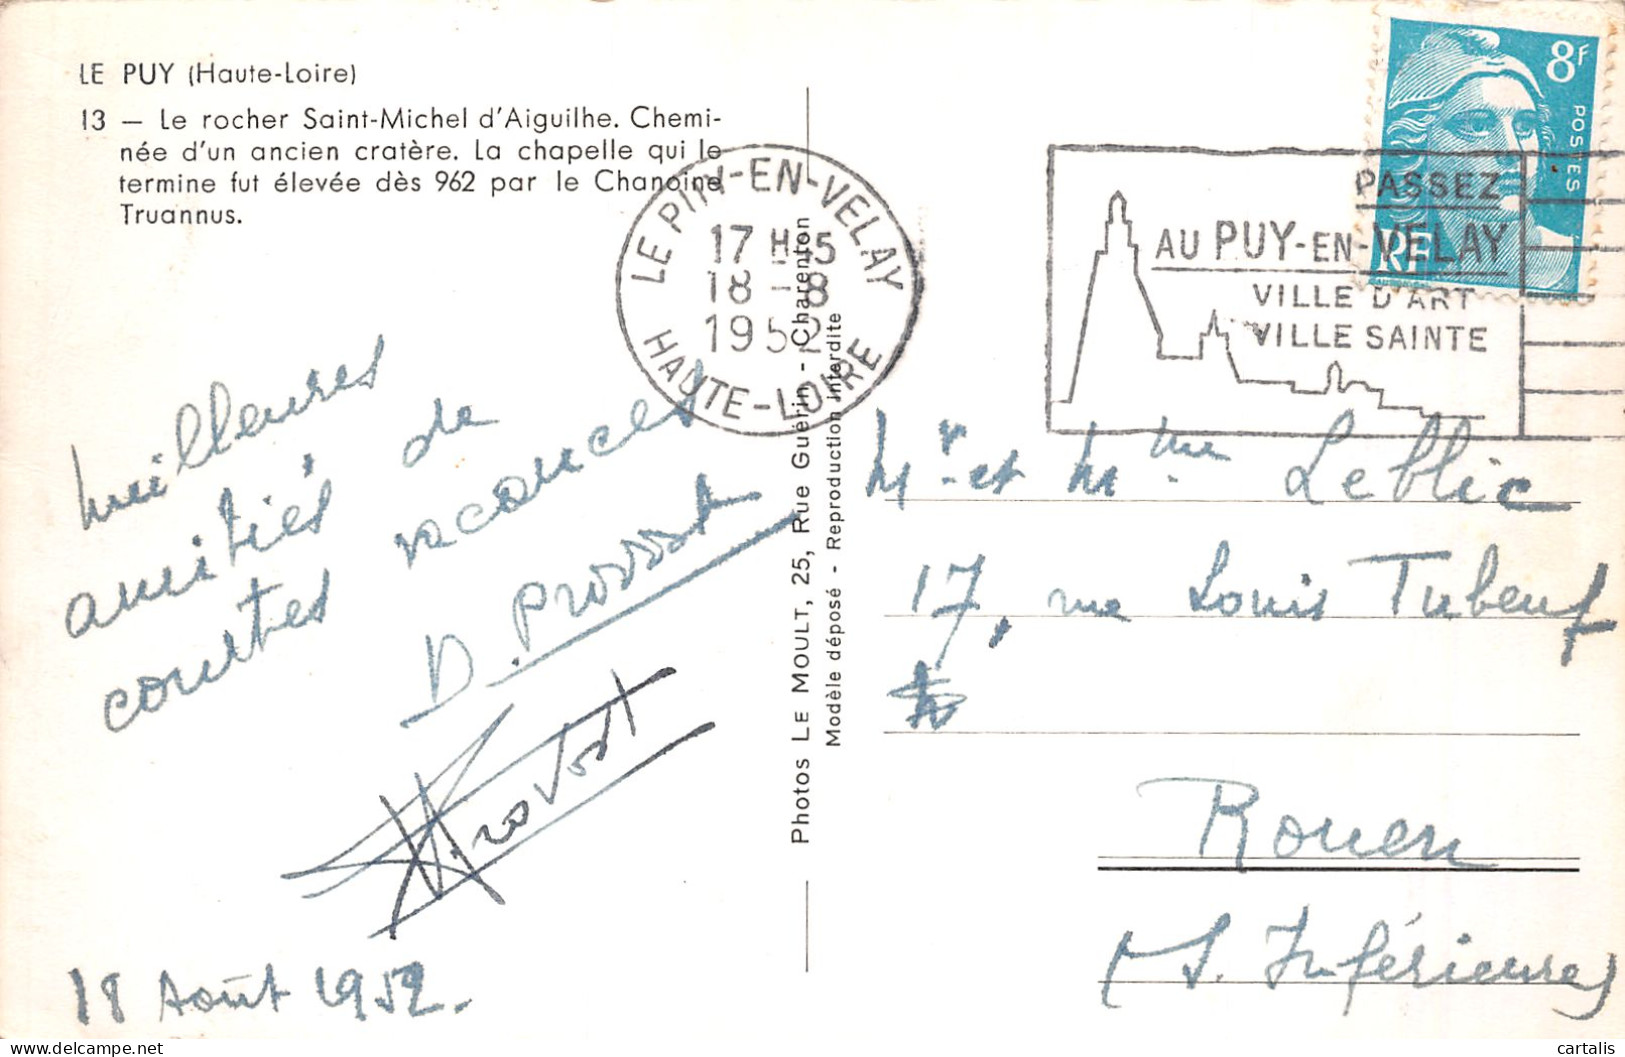 LE PUY (Haute-Loire)
13 — Le rocher Saint-Michel d'Aiguilhe. Chemi-
née d'un ancien cratère. La chapelle qui le
termine fut élevée dès 962 par le Chanoine
Truannus.
LE PIN-EN-VELAY
17 H 15
18 - 8
1952
HAUTE-LOIRE
8F
POSTES
RF
PASSEZ
AU PUY-EN-VELAY
VILLE D'ART
VILLE SAINTE
Meilleures
amitiés de
courtes vacances
D. Provost
Provost
18 Août 1952.
Photos LE MOULT, 25, Rue Guérin - Charenton
Modèle déposé - Reproduction Interdite
Mr et Mme Leblic
17, rue Louis Tubeuf
Rouen
(S. Inférieure)
cartalis